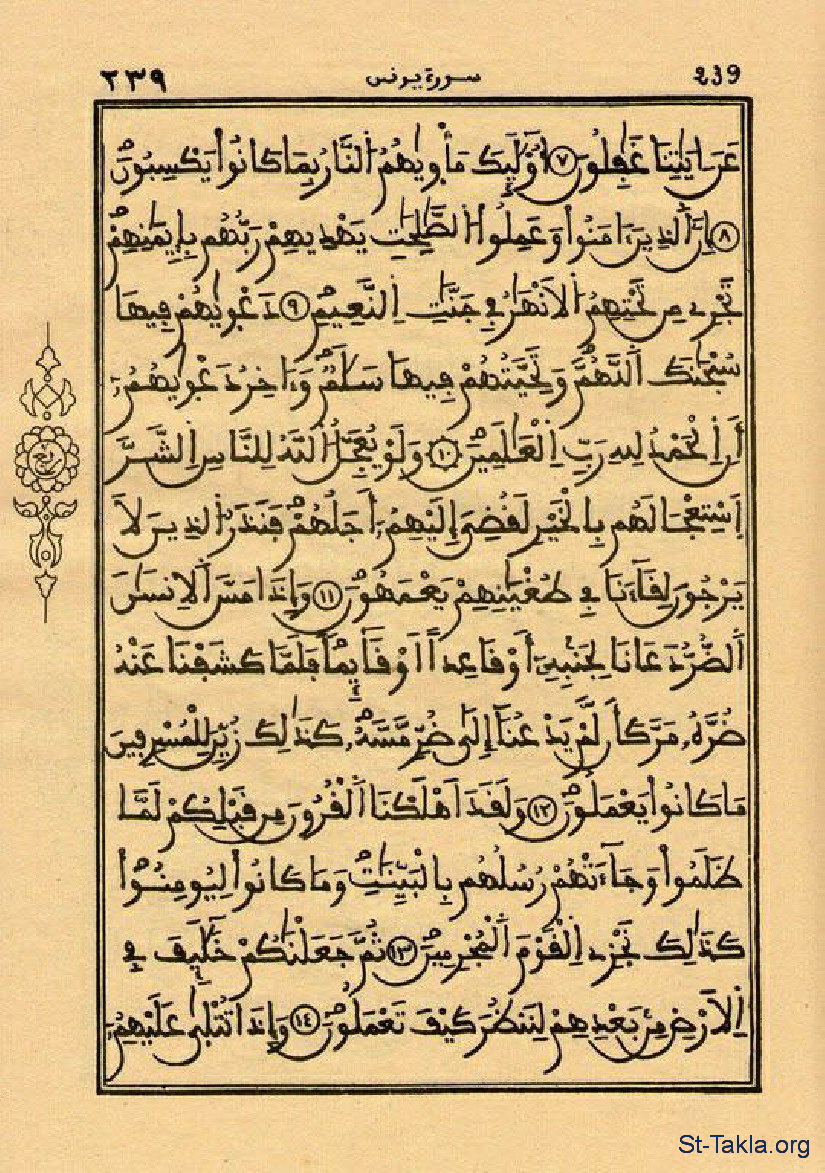 ٢٣٩ سورة يونس 239
عَنَ اٰيَٰتِنَا غَٰفِلُونَ ٧ أُوْلَٰٓئِكَ مَأْو۪يٰهُمُ اُ۬لنَّارُ بِمَا كَانُواْ يَكْسِبُونَۖ
٨ إِنَّ اَ۬لذِينَ ءَامَنُواْ وَعَمِلُواْ اُ۬لصَّٰلِحَٰتِ يَهْدِيهِمْ رَبُّهُم بِإِيمَٰنِهِمْۖ
تَجْرِے مِن تَحْتِهِمُ اُ۬لَانْهَٰرُ فِے جَنَّٰتِ اِ۬لنَّعِيمِۖ ٩ دَعْو۪يٰهُمْ فِيهَا
سُبْحَٰنَكَ اَ۬للَّهُمَّ وَتَحِيَّتُهُمْ فِيهَا سَلَٰمٞۖ وَءَاخِرُ دَعْو۪يٰهُمُۥٓ
أَنِ اِ۬لْحَمْدُ لِلهِ رَبِّ اِ۬لْعَٰلَمِينَۖ ١٠ وَلَوْ يُعَجِّلُ اُ۬للَّهُ لِلنَّاسِ اِ۬لشَّرَّ
اَ۪سْتِعْجَالَهُم بِالْخَيْرِ لَقُضِيَ إِلَيْهِمُۥٓ أَجَلُهُمْۖ فَنَذَرُ اُ۬لذِينَ لَا
يَرْجُونَ لِقَآءَنَا فِے طُغْيَٰنِهِمْ يَعْمَهُونَۖ ١١ وَإِذَا مَسَّ اَ۬لِانسَٰنَ
اَ۬لضُّرُّ دَعَانَا لِجَنۢبِهِۦٓ أَوْ قَاعِداً اَوْ قَآئِماٗۖ فَلَمَّا كَشَفْنَا عَنْهُ
ضُرَّهُۥ مَرَّ كَأَن لَّمْ يَدْعُنَآ إِلَىٰ ضُرّٖ مَّسَّهُۥۖ كَذَٰلِكَ زُيِّنَ لِلْمُسْرِفِينَ
مَا كَانُواْ يَعْمَلُونَۖ ١٢ وَلَقَدَ اَهْلَكْنَا اَ۬لْقُرُونَ مِن قَبْلِكُمْ لَمَّا
ظَلَمُواْ وَجَآءَتْهُمْ رُسُلُهُم بِالْبَيِّنَٰتِۖ وَمَا كَانُواْ لِيُومِنُواْۖ
كَذَٰلِكَ نَجْزِے اِ۬لْقَوْمَ اَ۬لْمُجْرِمِينَۖ ١٣ ثُمَّ جَعَلْنَٰكُمْ خَلَٰٓئِفَ فِے
اِ۬لَارْضِ مِنۢ بَعْدِهِمْ لِنَنظُرَ كَيْفَ تَعْمَلُونَۖ ١٤ وَإِذَا تُتْلَىٰ عَلَيْهِمُۥٓ
St-Takla.org